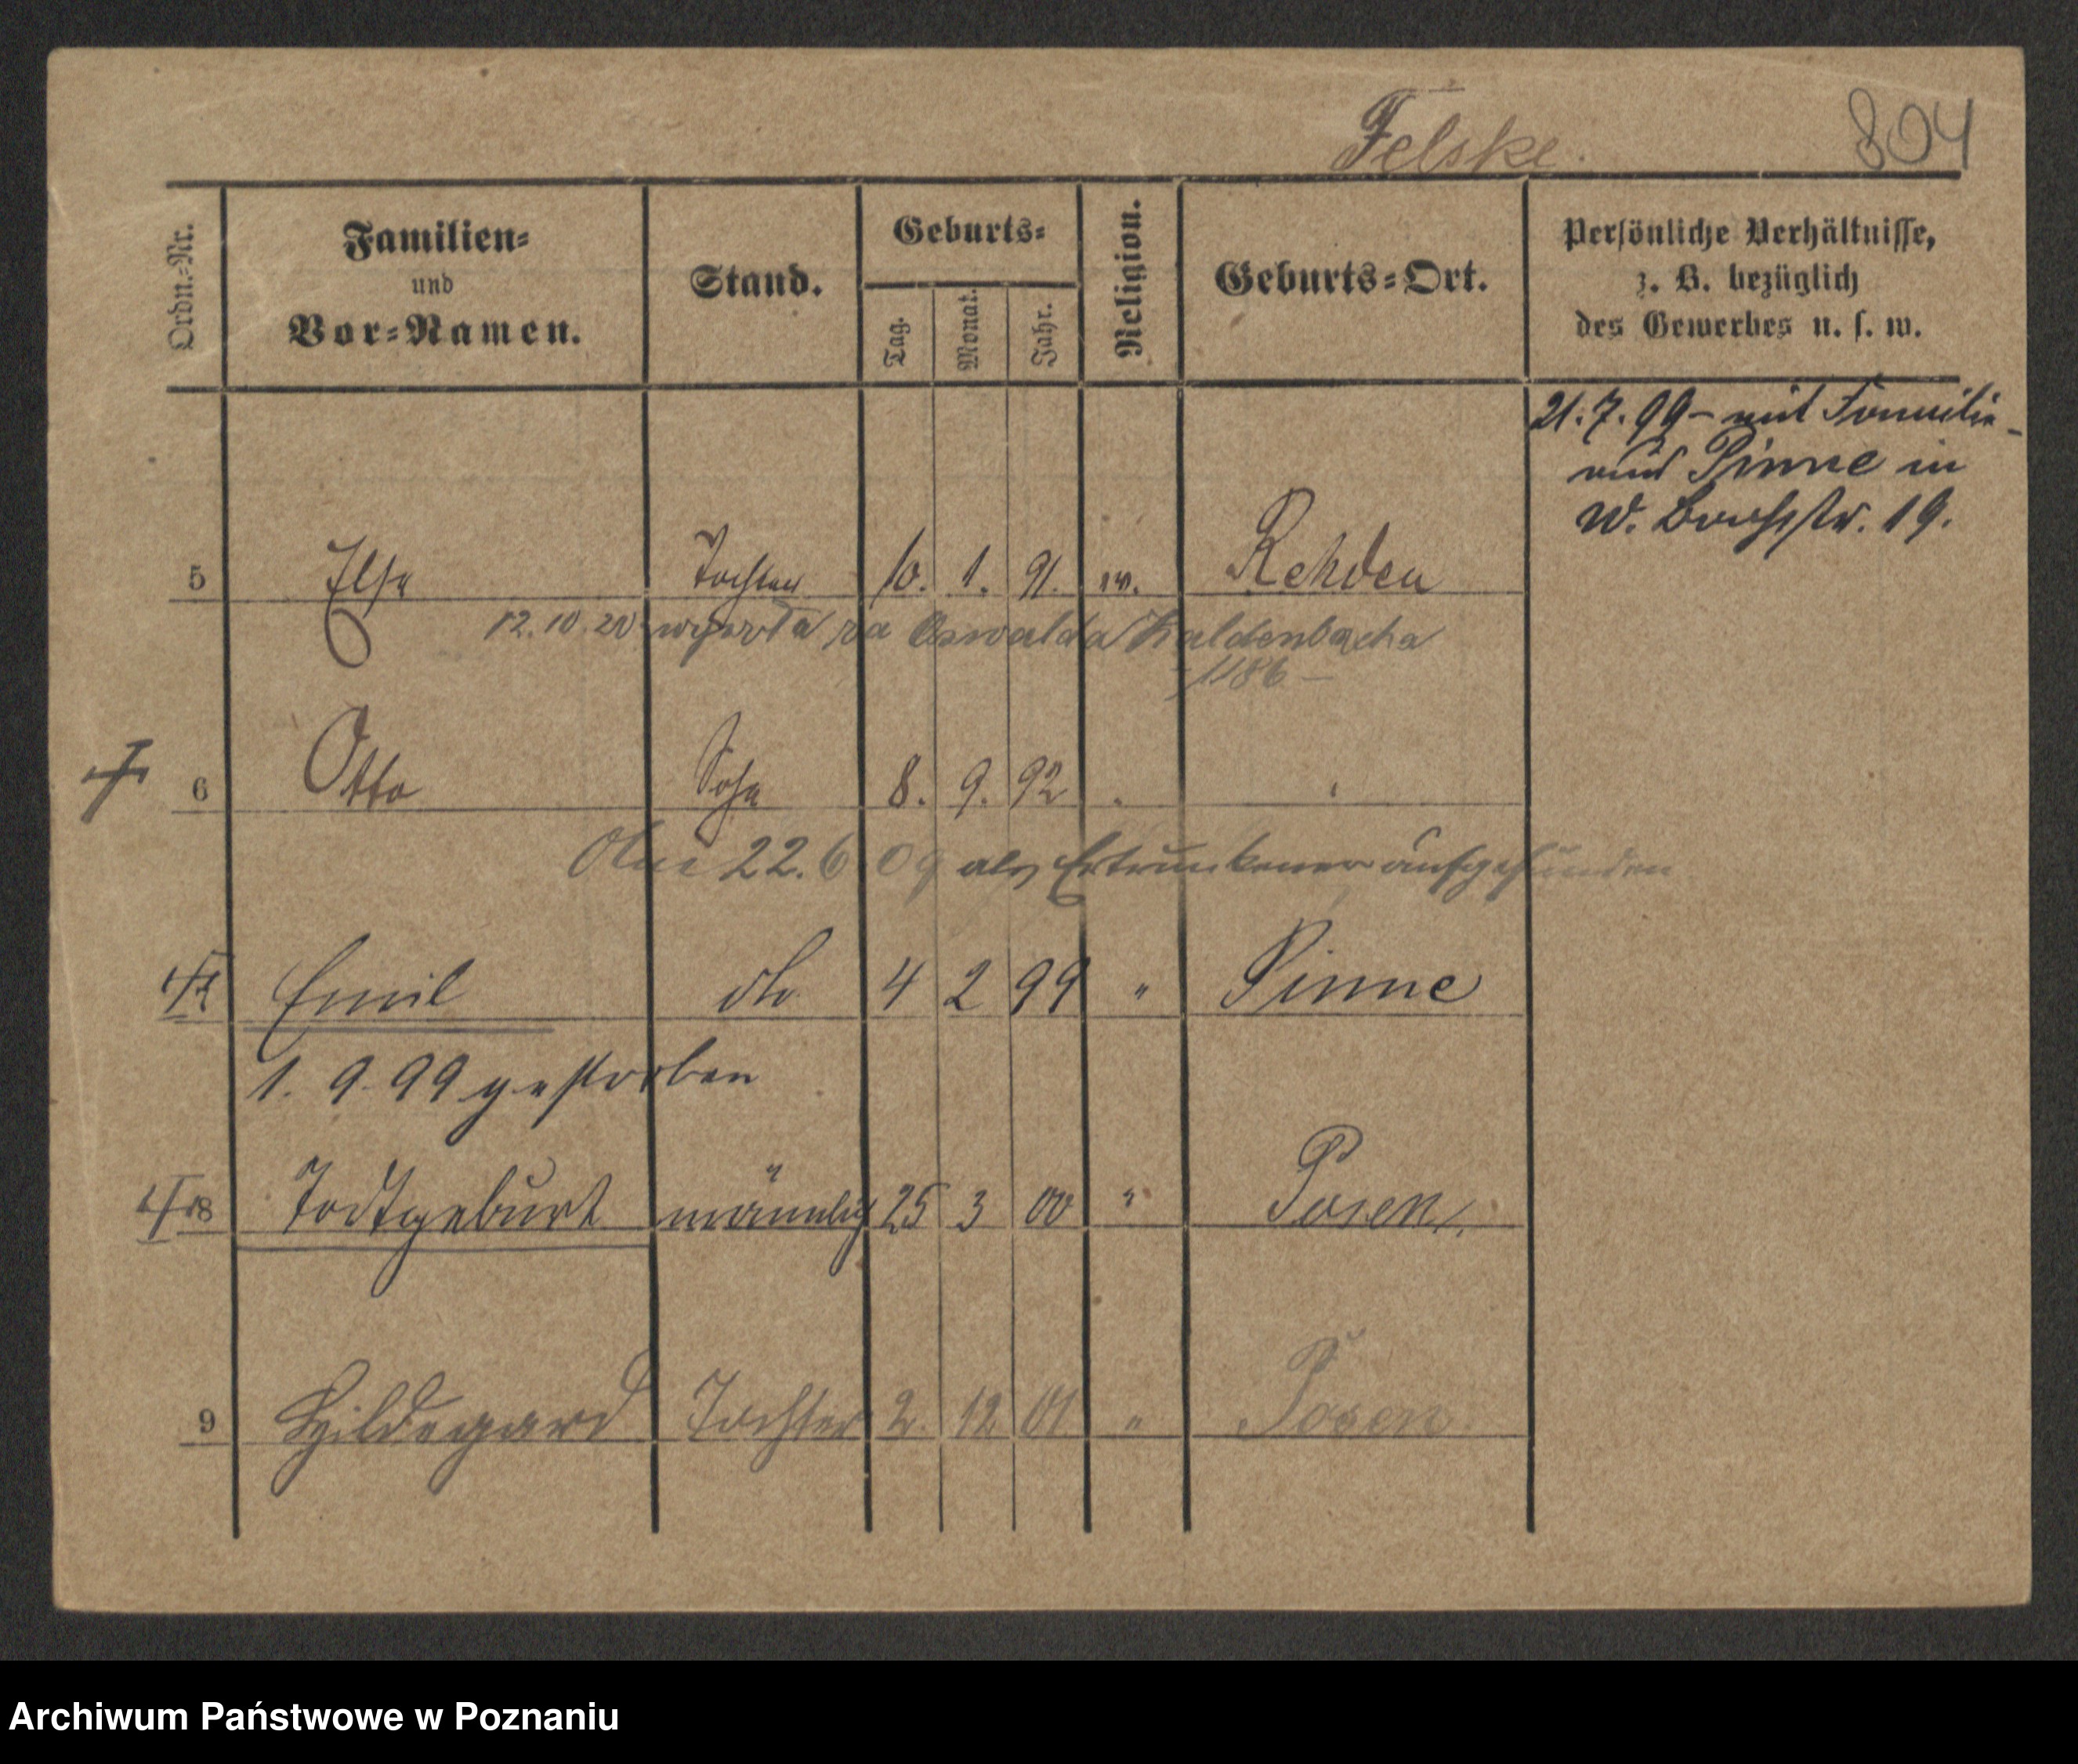 Felske. 804
Ordn.-Nr.
Familien-
und
Vor-Namen.
Stand.
Geburts-
Tag.
Monat.
Jahr.
Religion.
Geburts-Ort.
Persönliche Verhältnisse,
z. B. bezüglich
des Gewerbes u. s. w.
21.7.99 - mit Familie
aus Pinne in
W. 19.
5 Else Tochter 10. 1. 91. ev. Rehden
12.10.20 wyszła za Oswalda Kaldenbacha
1186 -
6 Otto Sohn 8. 9. 92 " "
22.6.09 als Ertrunkener aufgefunden
7 Emil do 4 2 99 " Pinne
1. 9. 99 gestorben
8 Todtgeburt männlich 25 3 00 " Posen.
9 Hildegard Tochter 2. 12 01. " Posen
Archiwum Państwowe w Poznaniu